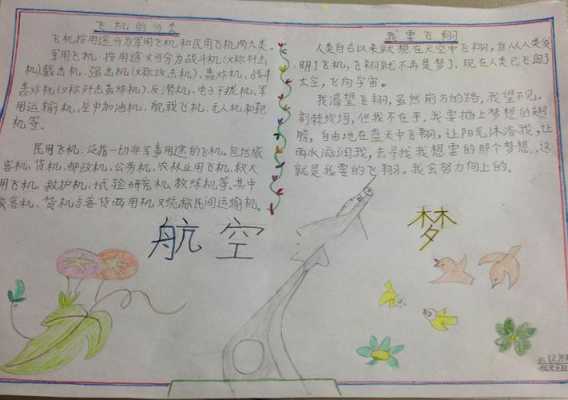 飞机的分类
飞机按用途分为军用飞机和民用飞机两大类。
军用飞机,按用途又可分为战斗机(又称歼击
机)截击机、强击机(又称攻击机)、轰炸机、战斗
轰炸机(又称歼击轰炸机)、反潜机、电子干扰机、军
用运输机、空中加油机、舰载飞机、无人机和靶
机等。
民用飞机、泛指一切非军事用途的飞机,包括旅
客机、货机、邮政机、公务机、农林业用飞机、救火
用飞机、救护机、试验研究机、教练机等。其中
旅客机、货机与客货两用机又统称民间运输机。
我要飞翔
人类自古以来就想在天空中飞翔,自从人类发
明了飞机,飞翔就不再是梦了,现在人类已飞向了
太空,飞向宇宙。
我渴望飞翔,虽然前方的路,我望不见,
荆棘坎坷,但我不在乎,我要插上梦想的翅
膀,自由地在蓝天中飞翔,让阳光沐浴我,让
雨水滋润我,去寻找我想要的那个梦想,这
就是我要的飞翔。我会努力向上的。
航空
梦